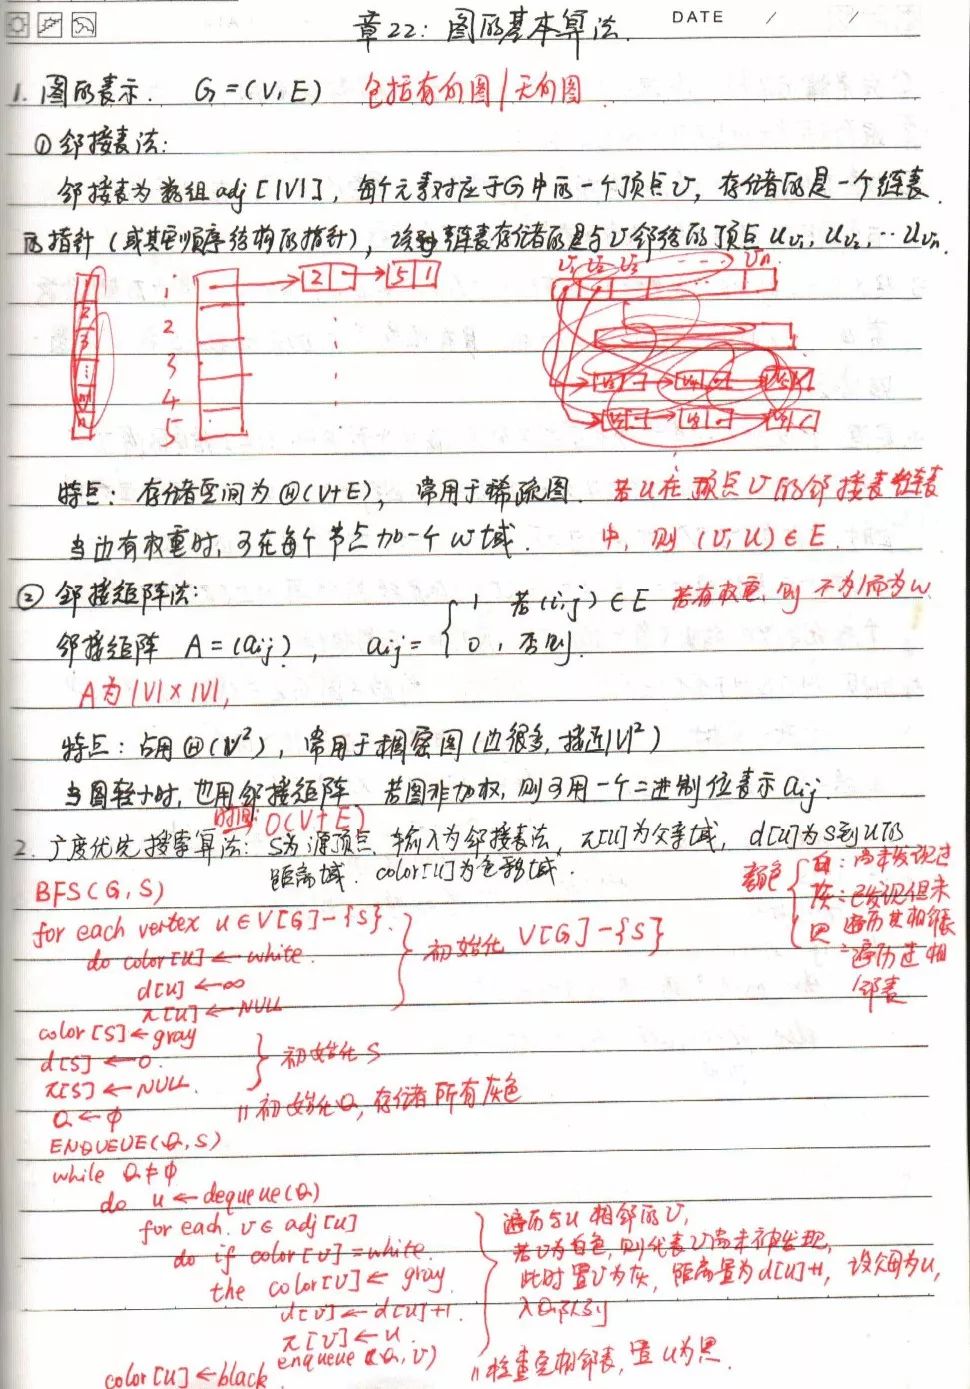 DATE / /
章22：图的基本算法.
1. 图的表示. G=(V,E) 包括有向图/无向图.
① 邻接表法:
邻接表为数组adj[|V|], 每个元素对应于G中的一个顶点v, 存储的是一个链表
的指针(或其到顺序结构的指针), 该链表存储的是与v邻接的顶点 uv₁, uv₂, … uvₙ.
1 2 3 ⋮
1 2 3 4 5
2 5 1
v₁ v₂ v₃ … vn
特点: 存储空间为Θ(V+E), 常用于稀疏图. 若u在顶点v的邻接表链表
当边有权重时, 可在每个节点加一个w域. 中, 则 (v, u) ∈ E.
② 邻接矩阵法:
1 若(i,j) ∈ E 若有权重, 则不为1而为w.
邻接矩阵 A=(aij), aij= 0, 否则.
A为|V|×|V|,
特点: 占用Θ(V²), 常用于稠密图(边很多, 接近|V|²)
当图较小时, 也用邻接矩阵 若图非加权, 则可用一个二进制位表示aij.
时间: O(V+E)
2. 广度优先搜索算法: S为源顶点, 输入为邻接表法, π[u]为父亲域, d[u]为S到u的
距离域. color[u]为色彩域.
颜色 白: 尚未发现过
灰: 已发现但未
遍历其相邻表
黑: 遍历过相
邻表
BFS(G, S)
for each vertex u ∈ V[G]-{S}.
do color[u] ← white.
d[u] ← ∞
π[u] ← NULL
初始化 V[G]-{S}
color[S] ← gray
d[S] ← 0.
π[S] ← NULL.
初始化 S
Q ← φ // 初始化Q, 存储所有灰色
ENQUEUE(Q, S)
while Q ≠ φ
do u ← dequeue(Q)
for each v ∈ adj[u]
do if color[v] = white.
the color[v] ← gray
d[v] ← d[u]+1.
π[v] ← u.
enqueue(Q, v)
遍历与u相邻的v,
若v为白色, 则代表v尚未被发现,
此时置v为灰, 距离置为d[u]+1, 设父母为u,
入Q队列
color[u] ← black. // 检查完相邻表, 置u为黑.